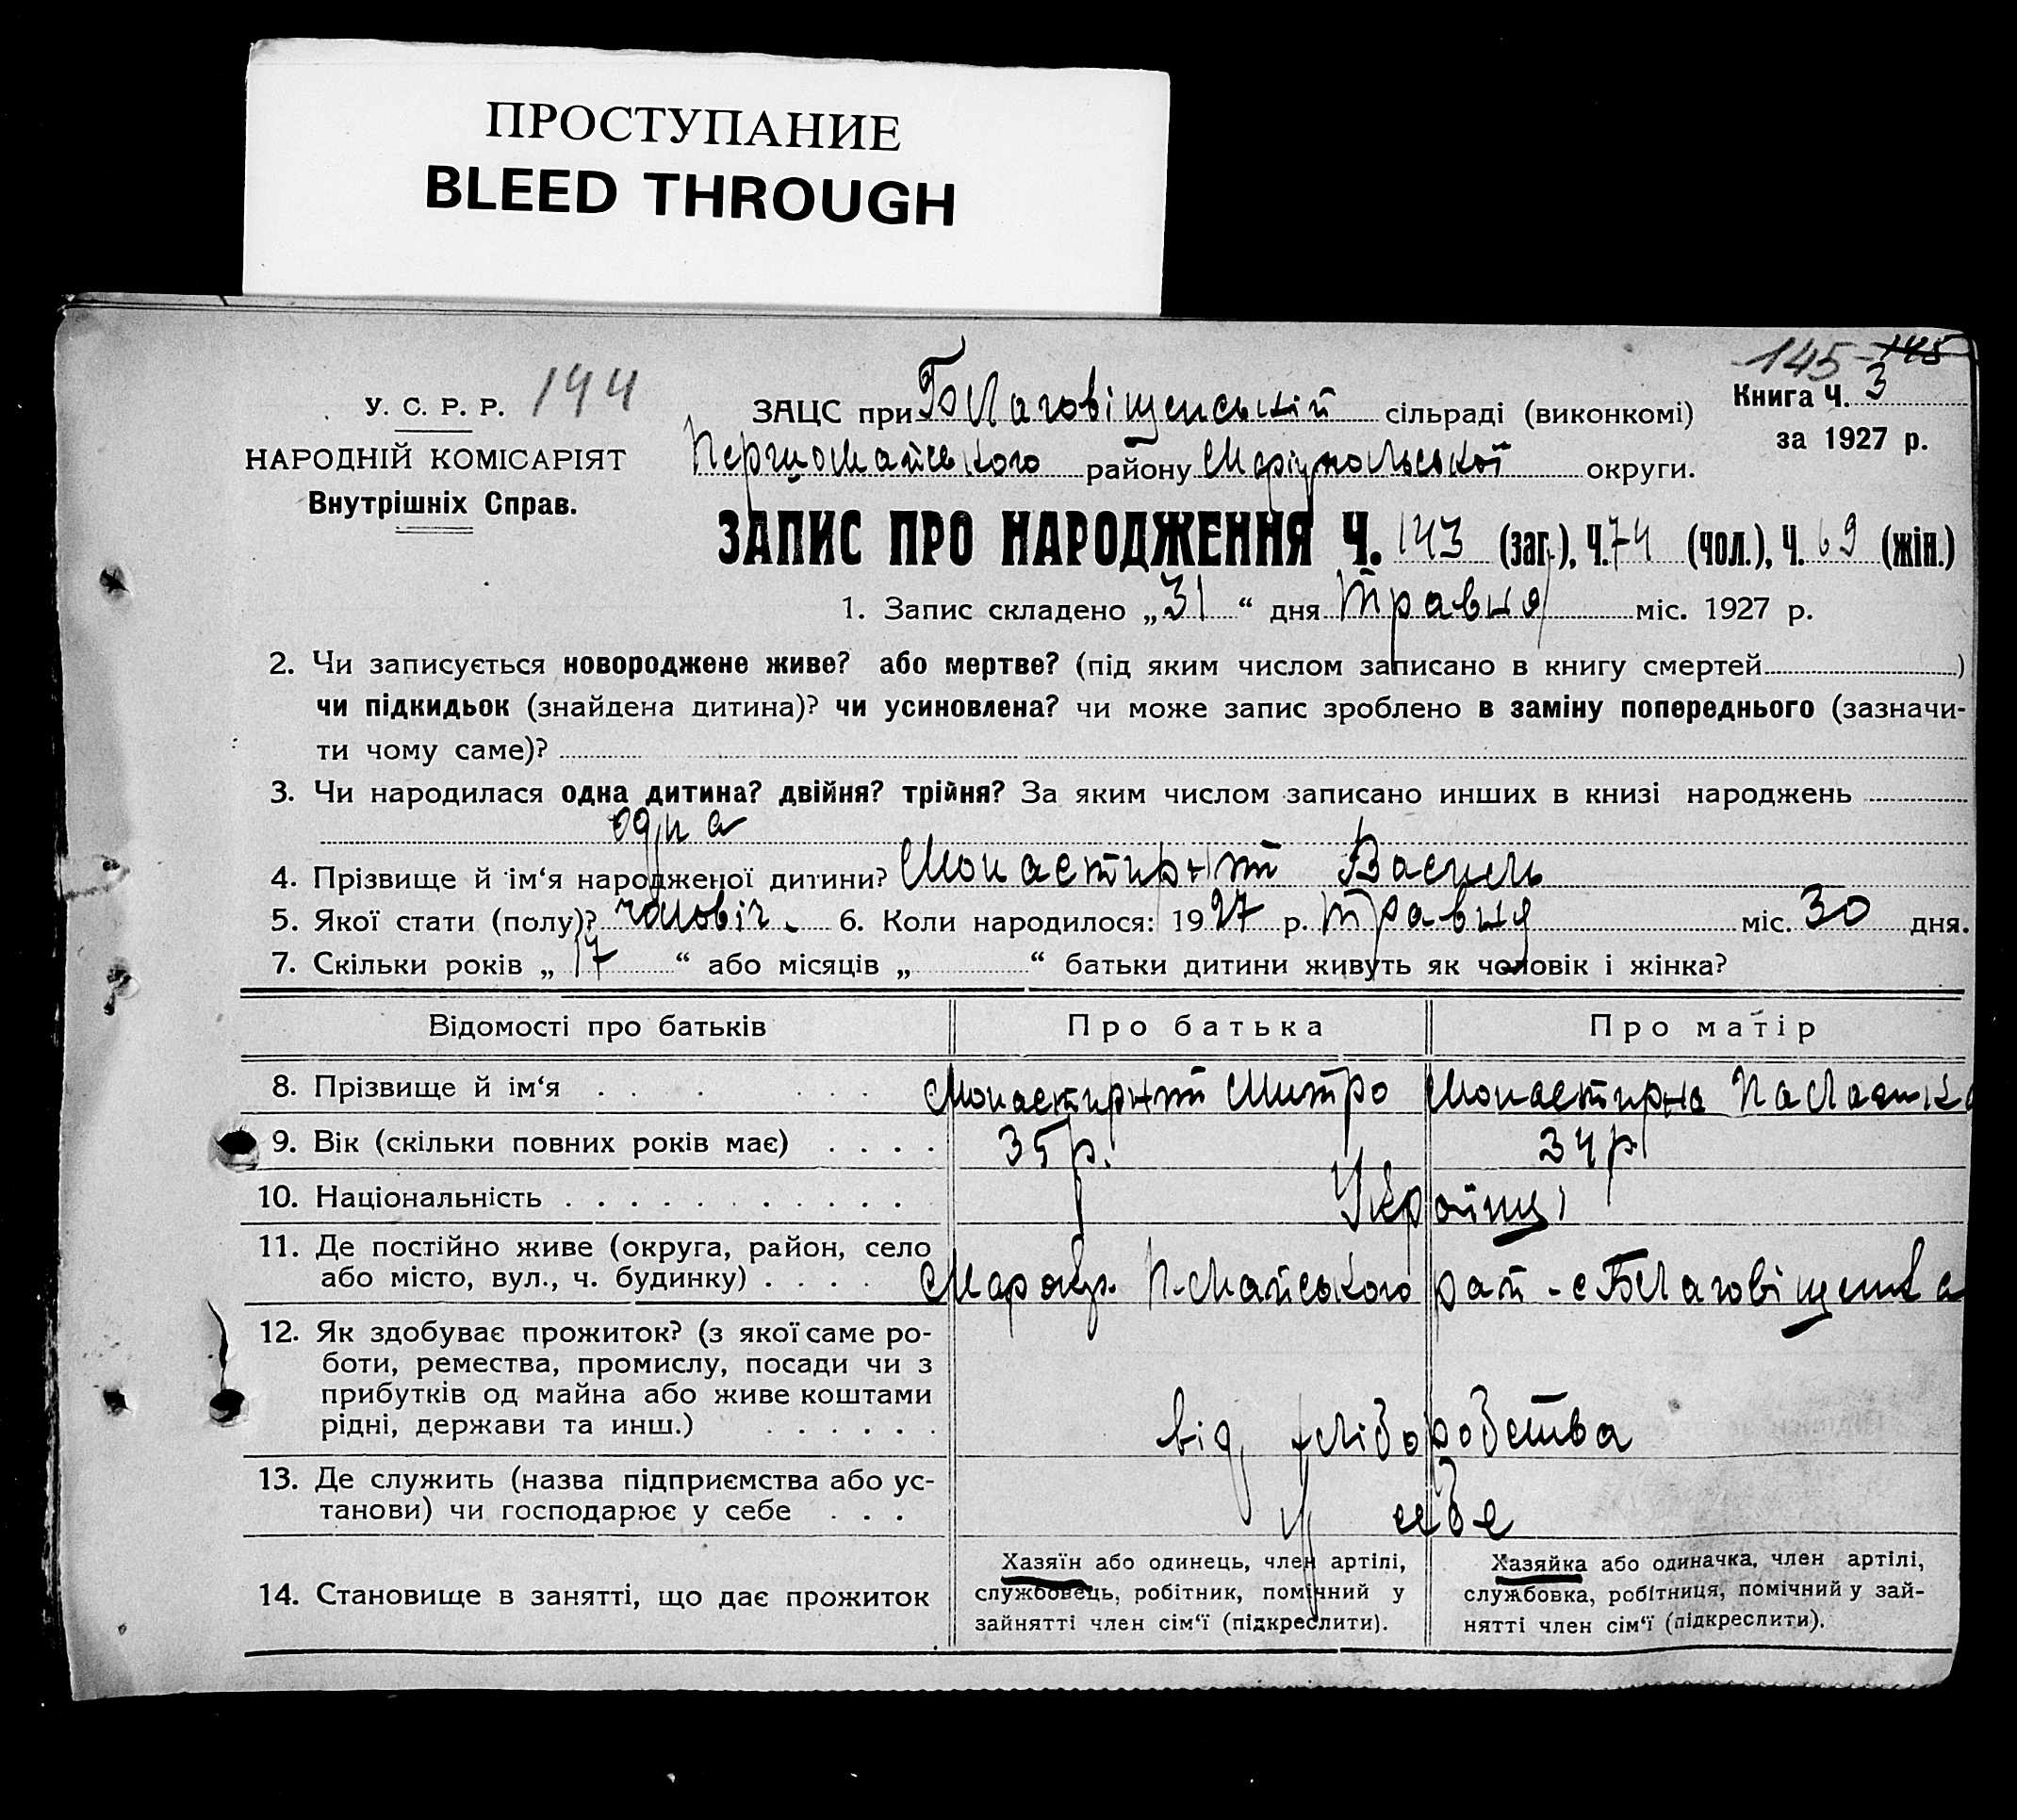 ПРОСТУПАНИЕ
BLEED THROUGH
145 145
У. С. Р. Р. 144
НАРОДНІЙ КОМІСАРІЯТ
Внутрішніх Справ.
ЗАЦС при Благовіщенській сільраді (виконкомі)
Книга Ч. 3
Першомайського району Маріупольської округи.
за 1927 р.
ЗАПИС ПРО НАРОДЖЕННЯ Ч. 143 (заг.), Ч. 74 (чол.), Ч. 69 (жін.)
1. Запис складено „31“ дня Травня міс. 1927 р.
2. Чи записується новороджене живе? або мертве? (під яким числом записано в книгу смертей)
чи підкидьок (знайдена дитина)? чи усиновлена? чи може запис зроблено в заміну попереднього (зазначи-
ти чому саме)?
3. Чи народилася одна дитина? двійня? трійня? За яким числом записано инших в книзі народжень
одна
4. Прізвище й ім‘я народженої дитини? Василь
5. Якої стати (полу)? чоловіч. 6. Коли народилося: 1927 р. Травня міс. 30 дня.
7. Скільки років „17“ або місяців „ “ батьки дитини живуть як чоловік і жінка?
Відомості про батьків Про батька Про матір
8. Прізвище й ім‘я Митро
9. Вік (скільки повних років має) 35 р. 34 р
10. Національність Українці
11. Де постійно живе (округа, район, село
або місто, вул., ч. будинку) Мар окр. П-Майського рай - с Благовіщенка
12. Як здобуває прожиток? (з якої саме ро-
боти, ремества, промислу, посади чи з
прибутків од майна або живе коштами
рідні, держави та инш.) від хліборобства
13. Де служить (назва підприємства або ус-
танови) чи господарює у себе у себе
14. Становище в занятті, що дає прожиток
Хазяїн або одинець, член артілі,
службовець, робітник, помічний у
зайнятті член сім‘ї (підкреслити).
Хазяйка або одиначка, член артілі,
службовка, робітниця, помічний у зай-
нятті член сім‘ї (підкреслити).